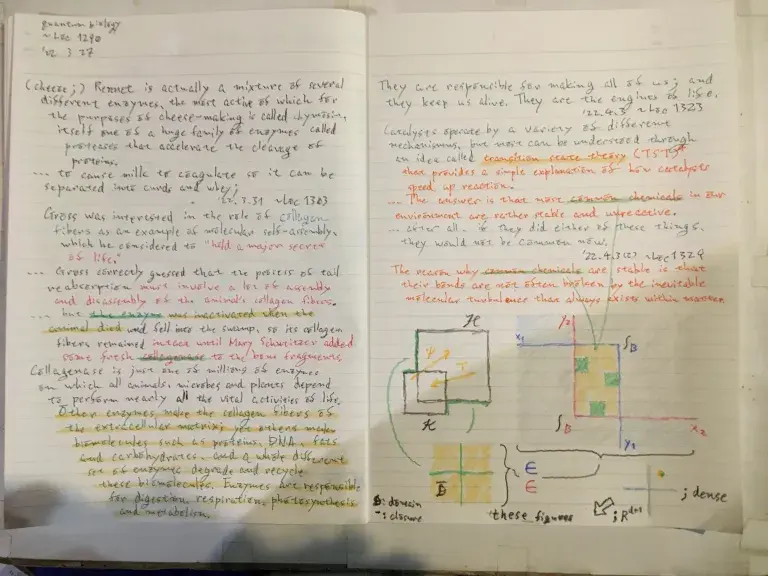 quantum biology
~ Loc 1290
'22. 3. 27
(cheese;) Rennet is actually a mixture of several
different enzymes, the most active of which for
the purposes of cheese-making is called chymosin,
itself one of a huge family of enzymes called
proteases that accelerate the cleavage of
proteins.
... to cause milk to coagulate so it can be
separated into curds and whey;
'22. 3.31 ~Loc 1303
Gross was interested in the role of collagen
fibers as an example of molecular self-assembly,
which he considered to "hold a major secret
of life."
... Gross correctly guessed that the process of tail
reabsorption must involve a lot of assembly
and disassembly of the animal's collagen fibers.
... but the enzyme was inactivated when the
animal died and fell into the swamp, so its collagen
fibers remained intact until Mary Schweitzer added
some fresh collagenase to the bone fragments.
Collagenase is just one of millions of enzymes
on which all animals, microbes and plants depend
to perform nearly all the vital activities of life.
Other enzymes make the collagen fibers of
the extracellular matrix; yet others make
biomolecules such as proteins, DNA, fats
and carbohydrates, and a whole different
set of enzymes degrade and recycle
these biomolecules. Enzymes are responsible
for digestion, respiration, photosynthesis
and metabolism.
They are responsible for making all of us; and
they keep us alive. They are the engines of life.
'22.4.3 ~Loc 1323
Catalysts operate by a variety of different
mechanisms, but most can be understood through
an idea called transition state theory (TST)
that provides a simple explanation of how catalysts
speed up reaction.
... The answer is that most common chemicals in our
environment are rather stable and unreactive.
... after all, if they did either of these things,
they would not be common now.
'22.4.3(2) ~Loc 1329
The reason why common chemicals are stable is that
their bonds are not often broken by the inevitable
molecular turbulence that always exists within matter.
H
Ψ
T
K
y2
x1
∫B
∫B
x2
y1
D̄
∈
∈
; dense
D: domain
¯: closure
these figures
; R^{d+1}